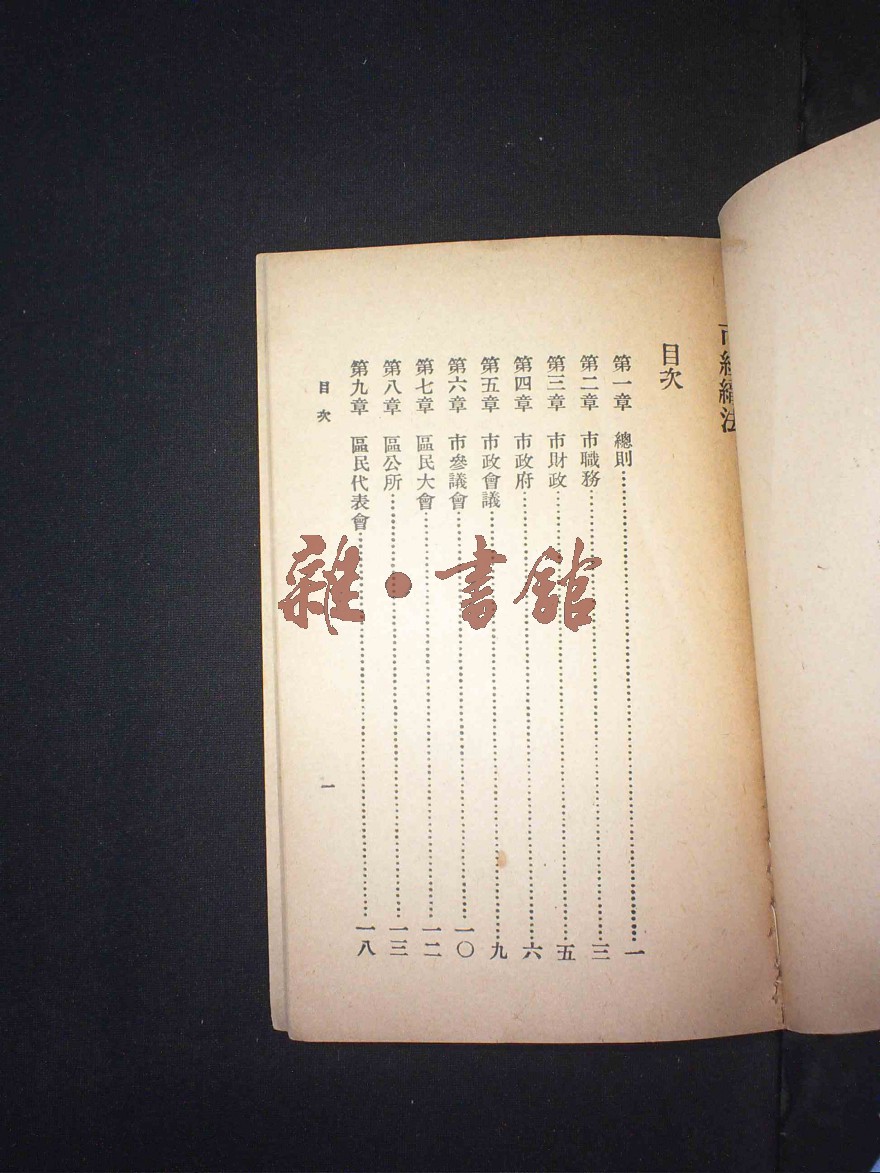 市組織法
目次
第一章 總則……一
第二章 市職務……三
第三章 市財政……五
第四章 市政府……六
第五章 市政會議……九
第六章 市參議會……一〇
第七章 區民大會……一二
第八章 區公所……一三
第九章 區民代表會……一八
目次
一
雜·書館